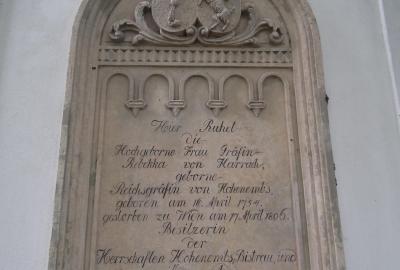 Hier Ruhet
die
Hochgeborne Frau Gräfin
Rebekka von Harrach,
geborne
Reichsgräfin von Hohenembs,
geboren am April
gestorben zu Wien am 17 April 1806.
Besitzerin
der
Herrschaften Hohenembs, Bistrau, und